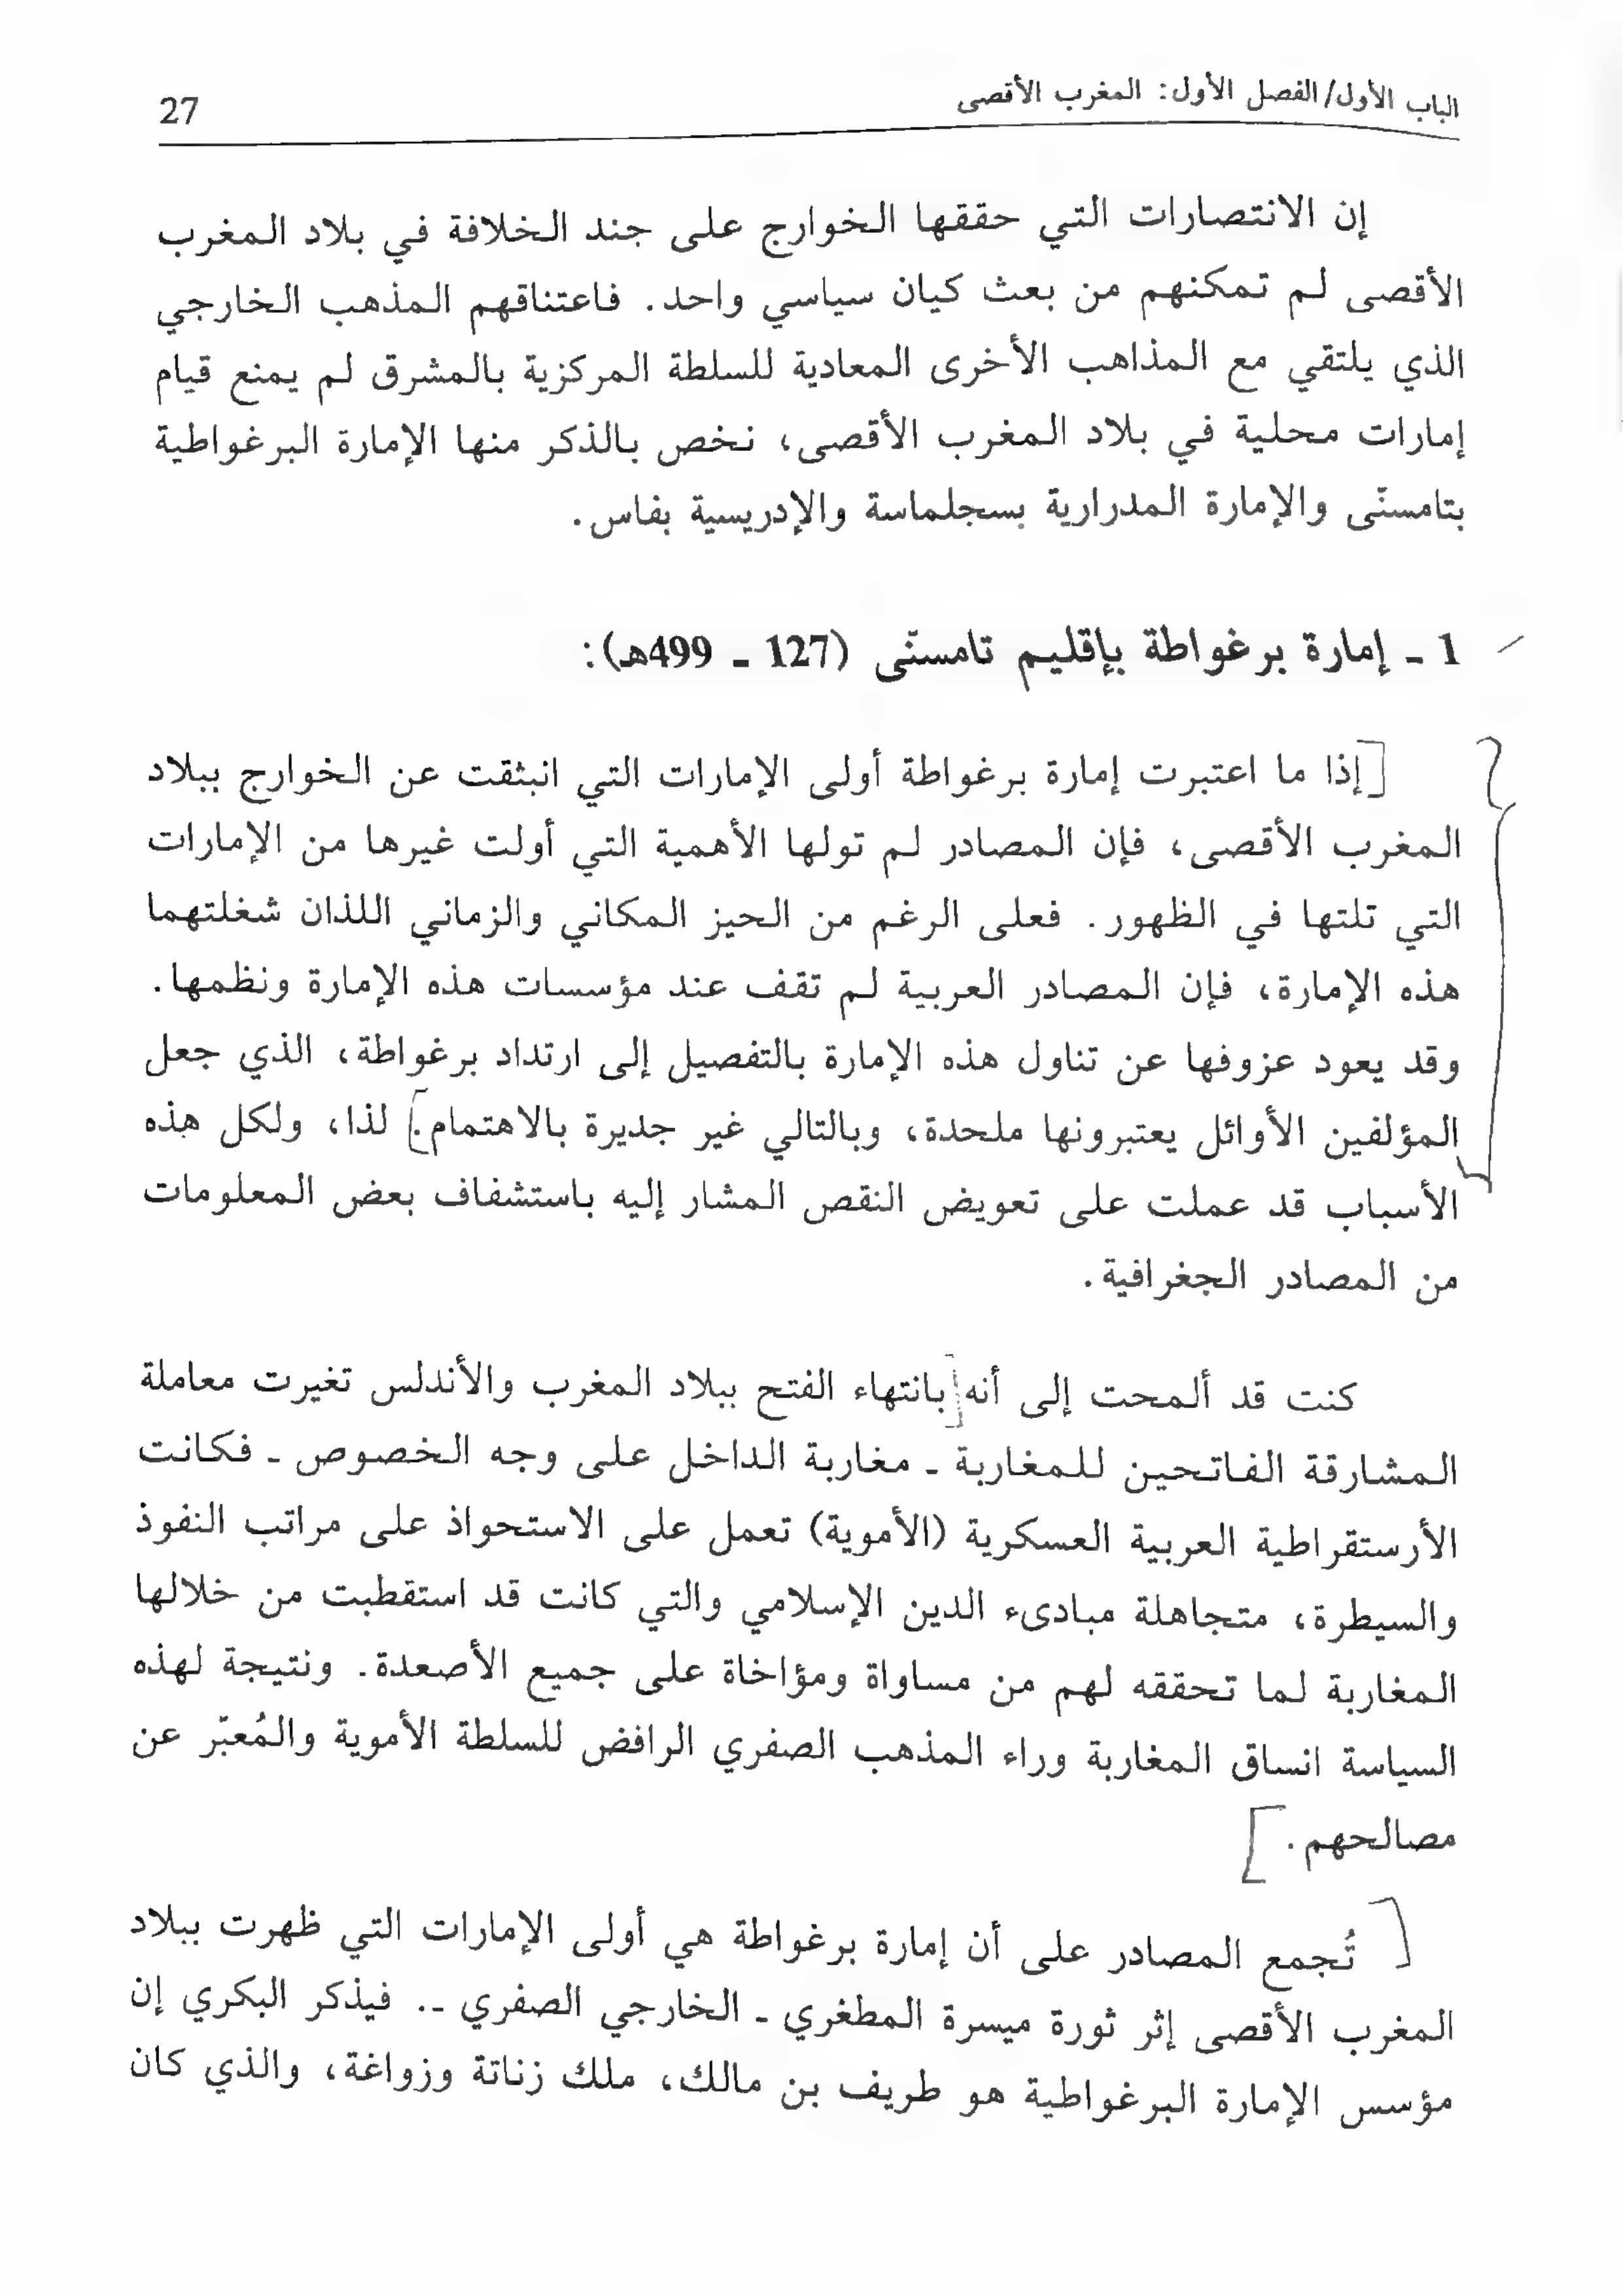 الباب الأول/الفصل الأول: المغرب الأقصى
27
إن الانتصارات التي حققها الخوارج على جند الخلافة في بلاد المغرب
الأقصى لم تمكنهم من بعث كيان سياسي واحد. فاعتناقهم المذهب الخارجي
الذي يلتقي مع المذاهب الأخرى المعادية للسلطة المركزية بالمشرق لم يمنع قيام
إمارات محلية في بلاد المغرب الأقصى، نخص بالذكر منها الإمارة البرغواطية
بتامسنّى والإمارة المدرارية بسجلماسة والإدريسية بفاس.
1 ـ إمارة برغواطة بإقليم تامسنّى (127 ـ 499هـ):
[إذا ما اعتبرت إمارة برغواطة أولى الإمارات التي انبثقت عن الخوارج ببلاد
المغرب الأقصى، فإن المصادر لم تولها الأهمية التي أولت غيرها من الإمارات
التي تلتها في الظهور. فعلى الرغم من الحيز المكاني والزماني اللذان شغلتهما
هذه الإمارة، فإن المصادر العربية لم تقف عند مؤسسات هذه الإمارة ونظمها.
وقد يعود عزوفها عن تناول هذه الإمارة بالتفصيل إلى ارتداد برغواطة، الذي جعل
المؤلفين الأوائل يعتبرونها ملحدة، وبالتالي غير جديرة بالاهتمام.] لذا، ولكل هذه
الأسباب قد عملت على تعويض النقص المشار إليه باستشفاف بعض المعلومات
من المصادر الجغرافية.
كنت قد ألمحت إلى أنه [بانتهاء الفتح ببلاد المغرب والأندلس تغيرت معاملة
المشارقة الفاتحين للمغاربة ـ مغاربة الداخل على وجه الخصوص ـ فكانت
الأرستقراطية العربية العسكرية (الأموية) تعمل على الاستحواذ على مراتب النفوذ
والسيطرة، متجاهلة مبادىء الدين الإسلامي والتي كانت قد استقطبت من خلالها
المغاربة لما تحققه لهم من مساواة ومؤاخاة على جميع الأصعدة. ونتيجة لهذه
السياسة انساق المغاربة وراء المذهب الصفري الرافض للسلطة الأموية والمُعبّر عن
مصالحهم.]
[تُجمع المصادر على أن إمارة برغواطة هي أولى الإمارات التي ظهرت ببلاد
المغرب الأقصى إثر ثورة ميسرة المطغري ـ الخارجي الصفري ـ. فيذكر البكري إن
مؤسس الإمارة البرغواطية هو طريف بن مالك، ملك زناتة وزواغة، والذي كان